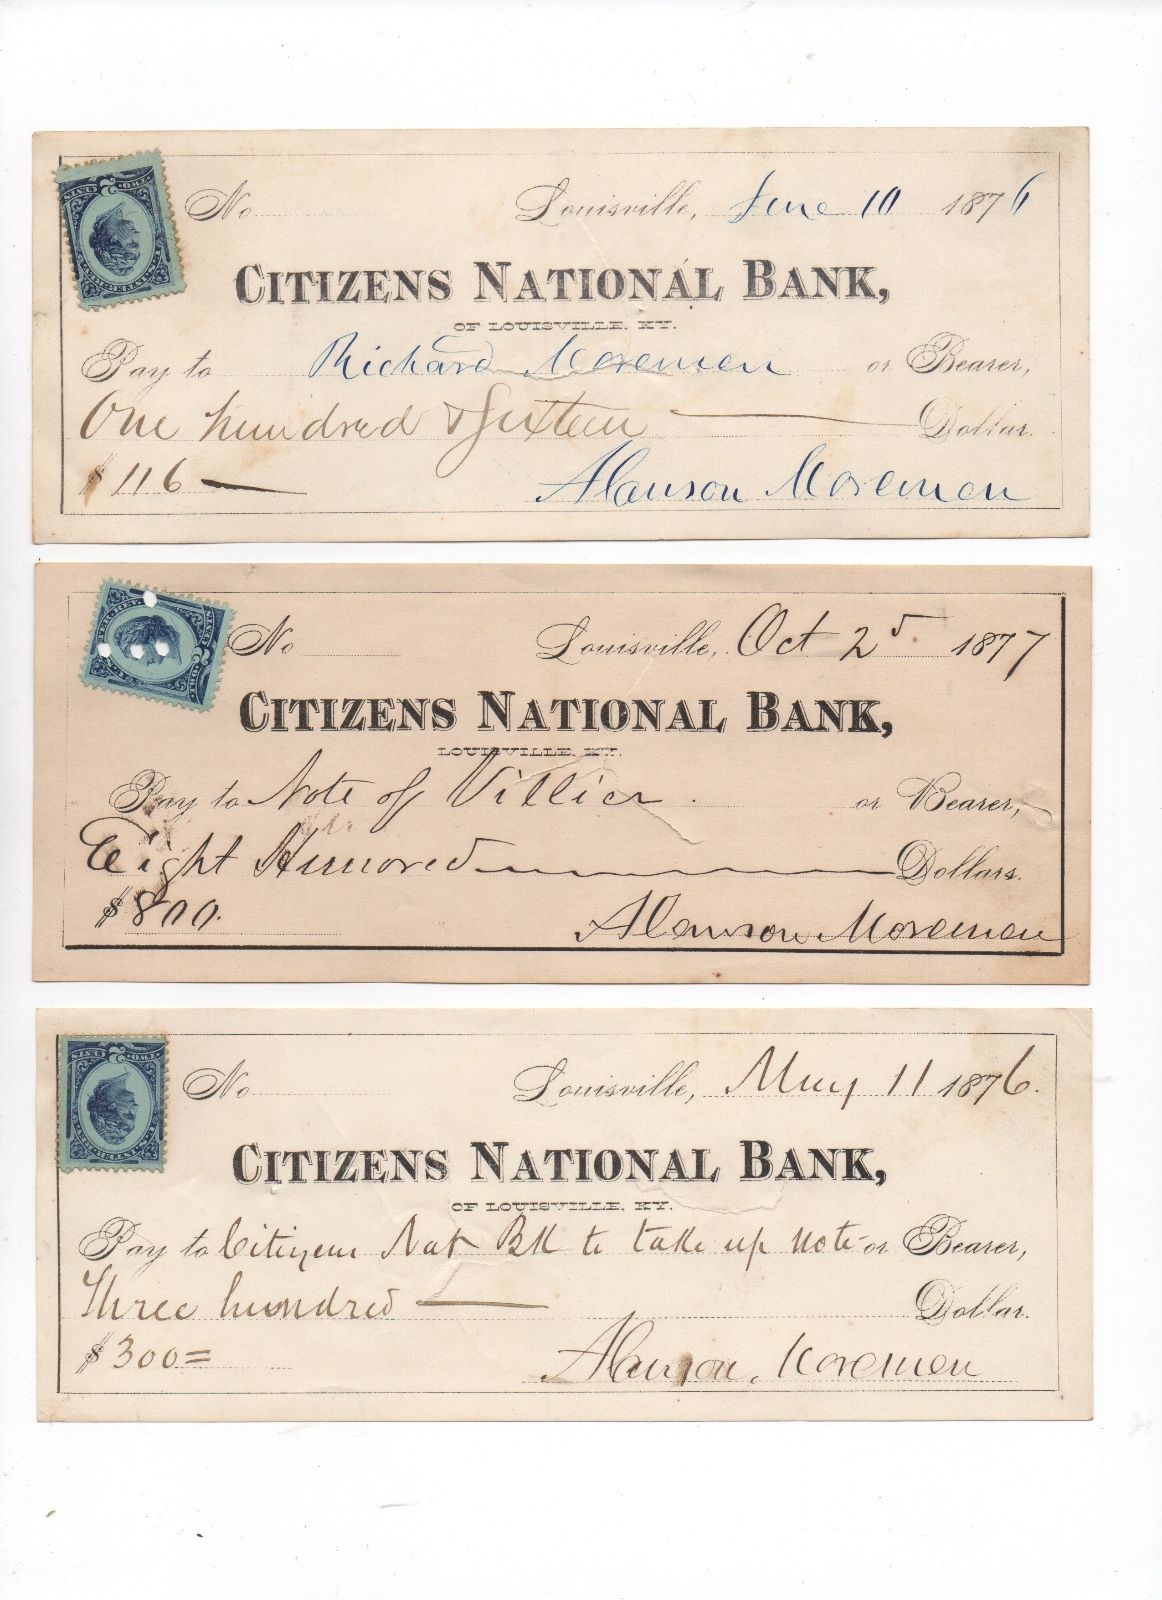 No Louisville, June 10 1876
CITIZENS NATIONAL BANK,
OF LOUISVILLE, KY.
Pay to Richard Moremen or Bearer,
One hundred & Sixteen Dollar
$ 116
Alanson Moremen
No Louisville, Oct 25 1877
CITIZENS NATIONAL BANK,
LOUISVILLE, KY.
Pay to Note of Villier or Bearer,
Eight Hundred Dollars.
$ 800.
Alanson Moremen
TWO CENTS
No Louisville, May 11 1876.
CITIZENS NATIONAL BANK,
OF LOUISVILLE, KY.
Pay to Citizens Nat Bk to take up note or Bearer,
Three hundred Dollar.
$ 300=
Alanson Moremen